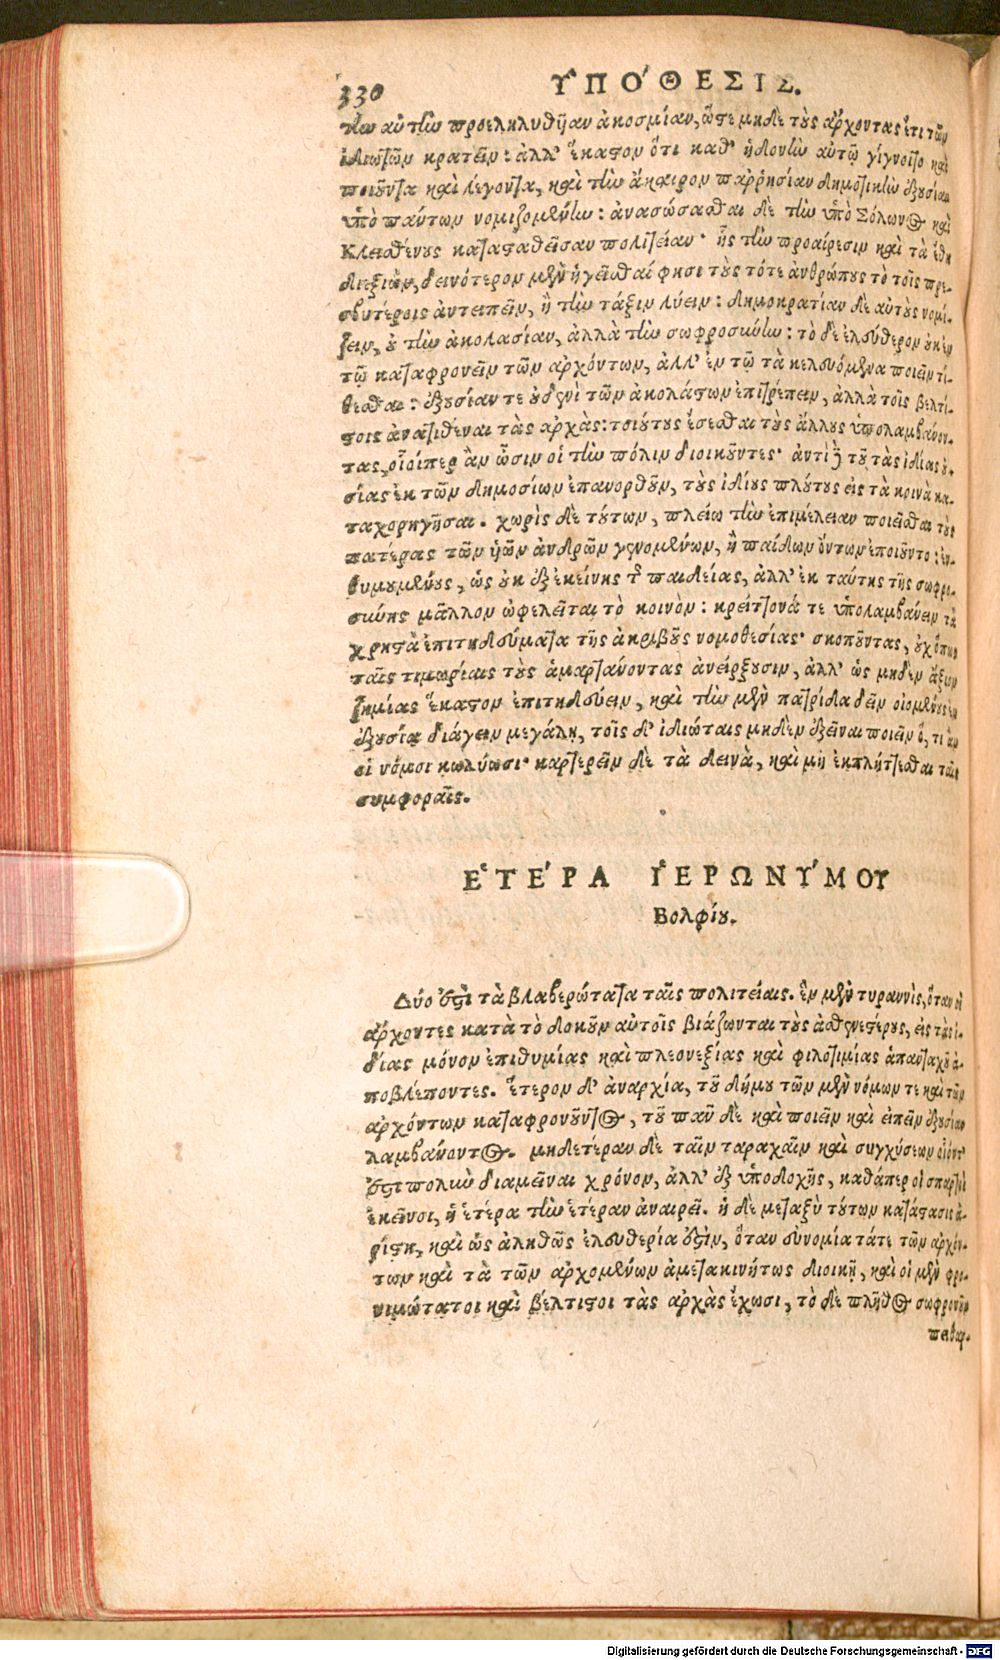 330 ὙΠΟ´ΘΕΣΙΣ.
τὴν αὐτὴν προεληλυθῆαν ἀκοσμίαν, ὥστε μηδὲ τοὺς ἄρχοντας ἔτι τῶν
ἰδιωτῶν κρατεῖν: ἀλλ' ἕκαστον ὅτι καθ' ἡδονὴν αὐτῷ γίγνοιτο καὶ
ποιοῦντα καὶ λέγοντα, καὶ τὴν ἄκαιρον παῤῥησίαν δημοτικὴν ἐξουσίαν
ὑπὸ πάντων νομιζομένην: ἀνασώσασθαι δὲ τὴν ὑπὸ Σόλωνος καὶ
Κλεισθένους κατασταθεῖσαν πολιτείαν· ἧς τὴν προαίρεσιν καὶ τὰ ἔθη
διεξιὼν, δεινότερον μὲν ἡγεῖσθαί φησι τοὺς τότε ἀνθρώπους τὸ τοῖς πρε-
σβυτέροις ἀντειπεῖν, ἢ τὴν τάξιν λύειν: δημοκρατίαν δὲ αὐτοὺς νομί-
ζειν, οὐ τὴν ἀκολασίαν, ἀλλὰ τὴν σωφροσύνην: τὸ δὲ ἐλεύθερον οὐκ ἐν
τῷ καταφρονεῖν τῶν ἀρχόντων, ἀλλ' ἐν τῷ τὰ κελευόμενα ποιεῖν τί-
θεσθαι: ἐξουσίαν τε οὐδενὶ τῶν ἀκολάστων ἐπιτρέπειν, ἀλλὰ τοῖς βελτί-
στοις ἀνατιθέναι τὰς ἀρχάς: τοιούτους ἔσεσθαι τοὺς ἄλλους ὑπολαμβάνον-
τας, οἷοίπερ ἂν ὦσιν οἱ τὴν πόλιν διοικοῦντες· ἀντὶ δὲ τοῦ τὰς ἰδίας οὐ-
σίας ἐκ τῶν δημοσίων ἐπανορθοῦν, τοὺς ἰδίους πλούτους εἰς τὰ κοινὰ κα-
ταχορηγῆσαι. χωρὶς δὲ τούτων, πλείω τὴν ἐπιμέλειαν ποιεῖσθαι τοὺς
πατέρας τῶν ἡῶν ἀνδρῶν γενομένων, ἢ παίδων ὄντων ἐποιοῦντο: ἐν-
θυμουμένους, ὡς οὐκ ἐξ ἐκείνης τῆς παιδείας, ἀλλ' ἐκ ταύτης τῆς σωφρο-
σύνης μᾶλλον ὠφελεῖται τὸ κοινόν: κρείττονά τε ὑπολαμβάνειν τὰ
χρηστὰ ἐπιτηδεύματα τῆς ἀκριβοῦς νομοθεσίας· σκοποῦντας, οὐχ ὅπως
ταῖς τιμωρίαις τοὺς ἁμαρτάνοντας ἀνείρξουσιν, ἀλλ' ὡς μηδὲν ἄξιον
ζημίας ἕκαστον ἐπιτηδεύειν, καὶ τὴν μὲν πατρίδα δεῖν οἰομένους ἐν
ἐξουσίᾳ διάγειν μεγάλῃ, τοῖς δ' ἰδιώταις μηδὲν ἐξεῖναι ποιεῖν ὅ, τι ἂν
οἱ νόμοι κωλύωσι· καρτερεῖν δὲ τὰ δεινὰ, καὶ μὴ ἐκπλήττεσθαι ταῖς
συμφοραῖς.
ἙΤΕ´ΡΑ ἹΕΡΩΝΥ´ΜΟΥ
Βολφίου.
Δύο ἐστὶ τὰ βλαβερώτατα ταῖς πολιτείαις. ἓν μὲν τυραννὶς, ὅταν οἱ
ἄρχοντες κατὰ τὸ δοκοῦν αὐτοῖς βιάζωνται τοὺς ἀσθενεστέρους, εἰς τὰς ἰ-
δίας μόνον ἐπιθυμίας καὶ πλεονεξίας καὶ φιλοτιμίας ἁπανταχοῦ ἀ-
ποβλέποντες. ἕτερον δ' ἀναρχία, τοῦ δήμου τῶν μὲν νόμων τε καὶ τῶν
ἀρχόντων καταφρονοῦντος, τοῦ πᾶν δὲ καὶ ποιεῖν καὶ εἰπεῖν ἐξουσίαν
λαμβάνοντος. μηδετέραν δὲ ταῖν ταραχαῖν καὶ συγχύσεων οἷόντ'
ἐστι πολὺν διαμεῖναι χρόνον, ἀλλ' ἐξ ὑποδοχῆς, καθάπερ οἱ σπαρτοὶ
ἐκεῖνοι, ἡ ἑτέρα τὴν ἑτέραν ἀναιρεῖ. ἡ δὲ μεταξὺ τούτων κατάστασις ἀ-
ρίστη, καὶ ὡς ἀληθῶς ἐλευθερία ἐστὶν, ὅταν εὐνομία τά τε τῶν ἀρχόν-
των καὶ τὰ τῶν ἀρχομένων ἀμετακινήτως διοικῇ, καὶ οἱ μὲν φρο-
νιμώτατοι καὶ βέλτιστοι τὰς ἀρχὰς ἔχωσι, τὸ δὲ πλῆθος σωφρονοῦν
πειθαρ-
Digitalisierung gefördert durch die Deutsche Forschungsgemeinschaft - DFG